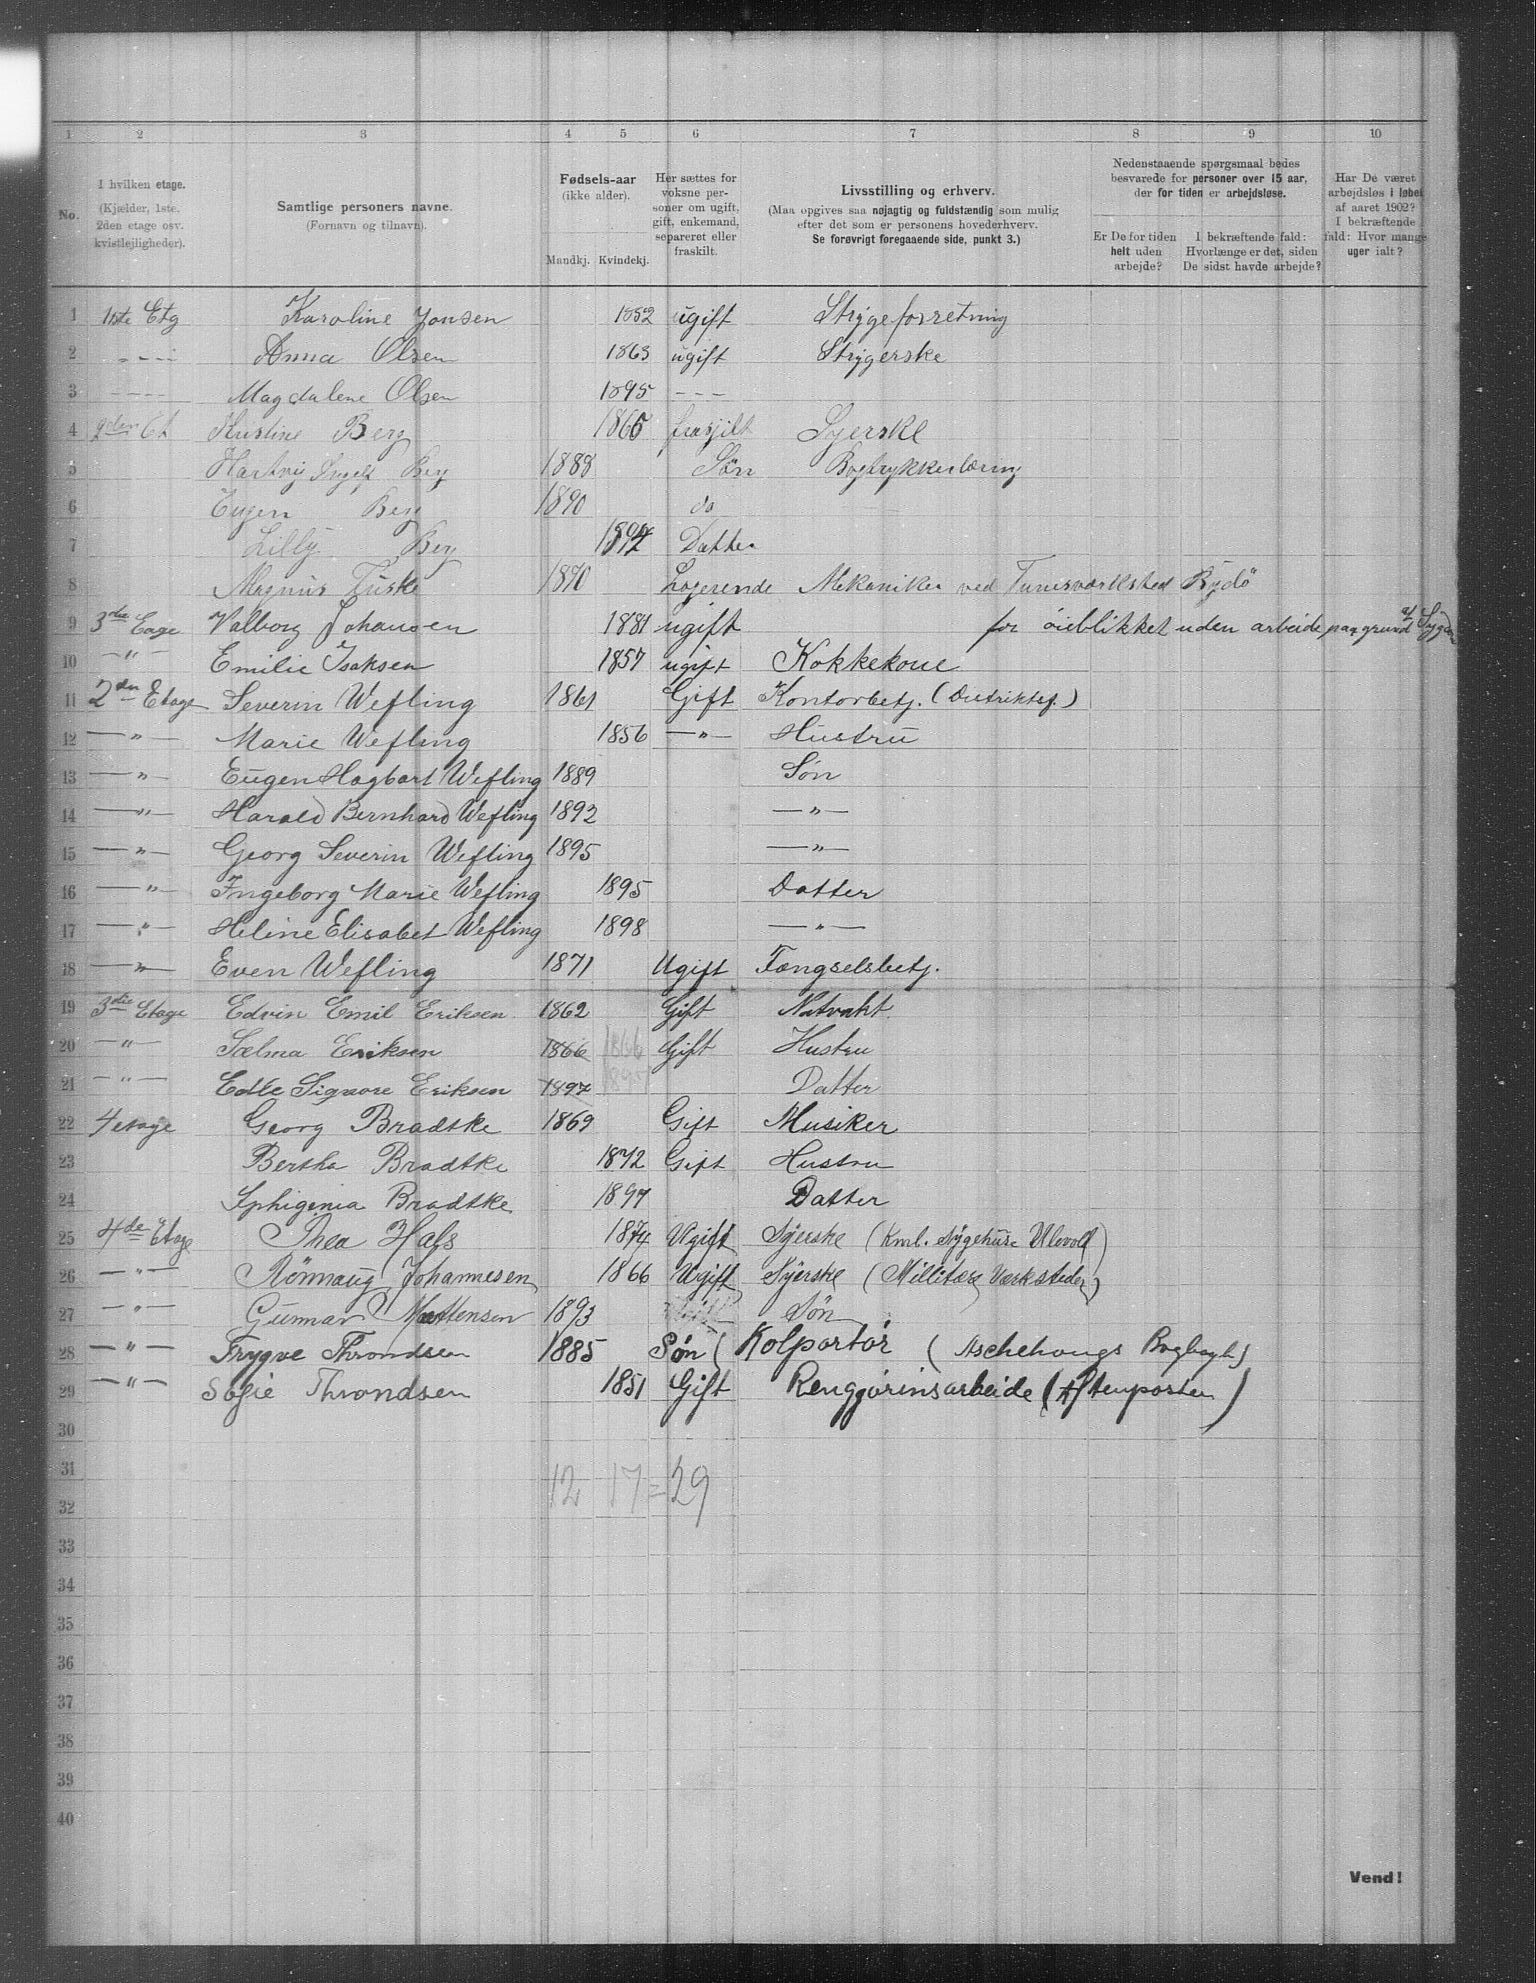 1 2 3 4 5 6 7 8 9 10
No.
I hvilken etage.
(Kjælder, 1ste.
2den etage osv.
kvistlejligheder).
Samtlige personers navne.
(Fornavn og tilnavn).
Fødsels-aar
(ikke alder).
Mandkj. Kvindekj.
Her sættes for
voksne per-
soner om ugift,
gift, enkemand,
separeret eller
fraskilt.
Livsstilling og erhverv.
(Maa opgives saa nøjagtig og fuldstændig som mulig
efter det som er personens hovederhverv.
Se forøvrigt foregaaende side, punkt 3.)
Nedenstaaende spørgsmaal bedes
besvarede for personer over 15 aar,
der for tiden er arbejdsløse.
Er De for tiden
helt uden
arbejde?
I bekræftende fald:
Hvorlænge er det, siden
De sidst havde arbejde?
Har De været
arbejdsløs i løbet
af aaret 1902?
I bekræftende
fald: Hvor mange
uger ialt?
1 1ste Etg Karoline Jonsen 1852 ugift Strygeforretning
2 - - - Anna Olsen 1863 ugift Strygerske
3 - - - - Magdalene Olsen 1895 - - -
4 2den Et Kristine Berg 1865 frasjilt Syerske
5 Hartvig Berg 1888 Søn Bogtrykkerlæring
6 Eugen Berg 1890 do
7 Lilly Berg 1894 Datter
8 Magnus 1870 Logerende Mekaniker ved Rydø
9 3die Etage Valborg Johansen 1881 ugift for øieblikket uden arbeide paa grund af
10 — " — Emilie Isaksen 1857 ugift Kokkekone
11 2den Etage Severin Wefling 1861 Gift Kontorbetj. (Distriktsf.)
12 — " — Marie Wefling 1856 — " — Hustru
13 — " — Eugen Hagbart Wefling 1889 Søn
14 — " — Harald Bernhard Wefling 1892 — " —
15 — " — Georg Severin Wefling 1895 — " —
16 — " — Ingeborg Marie Wefling 1895 Datter
17 — " — Heline Elisabet Wefling 1898 — " —
18 — " — Even Wefling 1871 Ugift Fængselsbetj.
19 3die Etage Edvin Emil Eriksen 1862 Gift Natvakt
20 — " — Sælma Eriksen 1866 1866 Gift Hustru
21 — " — Edle Signore Eriksen 1897 1897 Datter
22 4 etage Georg Bradtke 1869 Gift Musiker
23 Bertha Bradtke 1872 Gift Hustru
24 Iphigenia Bradtke 1897 Datter
25 4de Etage Thea Hals 1874 Ugift Syerske (Kml. Sygehuse Ulevold)
26 — " — Rönnaug Johannesen 1866 Ugift Syerske (Millitære Værksteder)
27 — " — Gunnar Mattensen 1893 Søn
28 — " — Trygve Throndsen 1885 Søn ( Kolportør (Aschehougs Bogbogh)
29 — " — Sofie Throndsen 1851 Gift Renggjørinsarbeide (Aftenposten)
30
31
12 17 = 29
32
33
34
35
36
37
38
39
40
Vend!